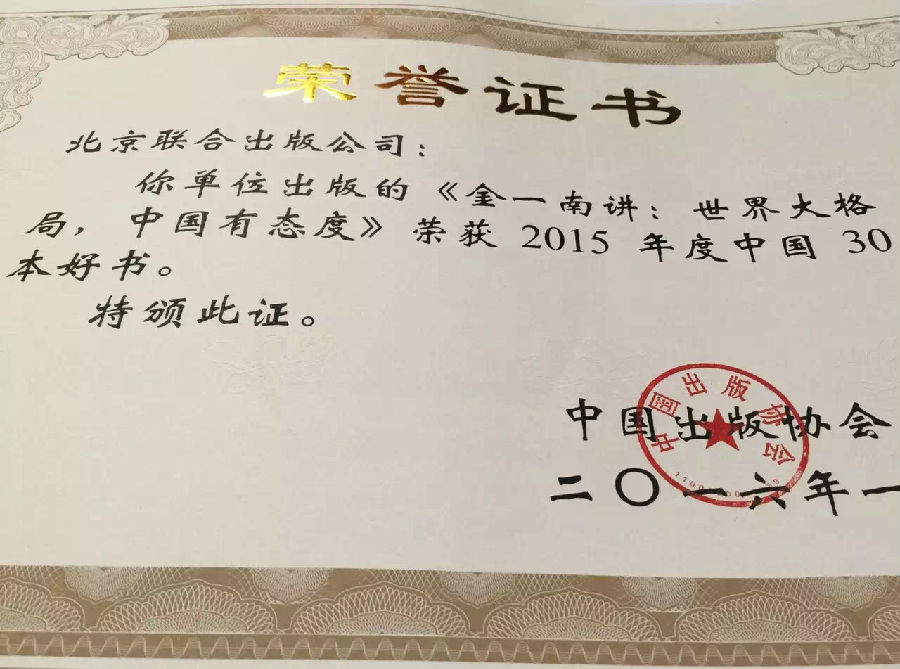 荣誉证书
北京联合出版公司：
你单位出版的《金一南讲：世界大格
局，中国有态度》荣获 2015 年度中国 30
本好书。
特颁此证。
中国出版协会
中国出版协会
二〇一六年一